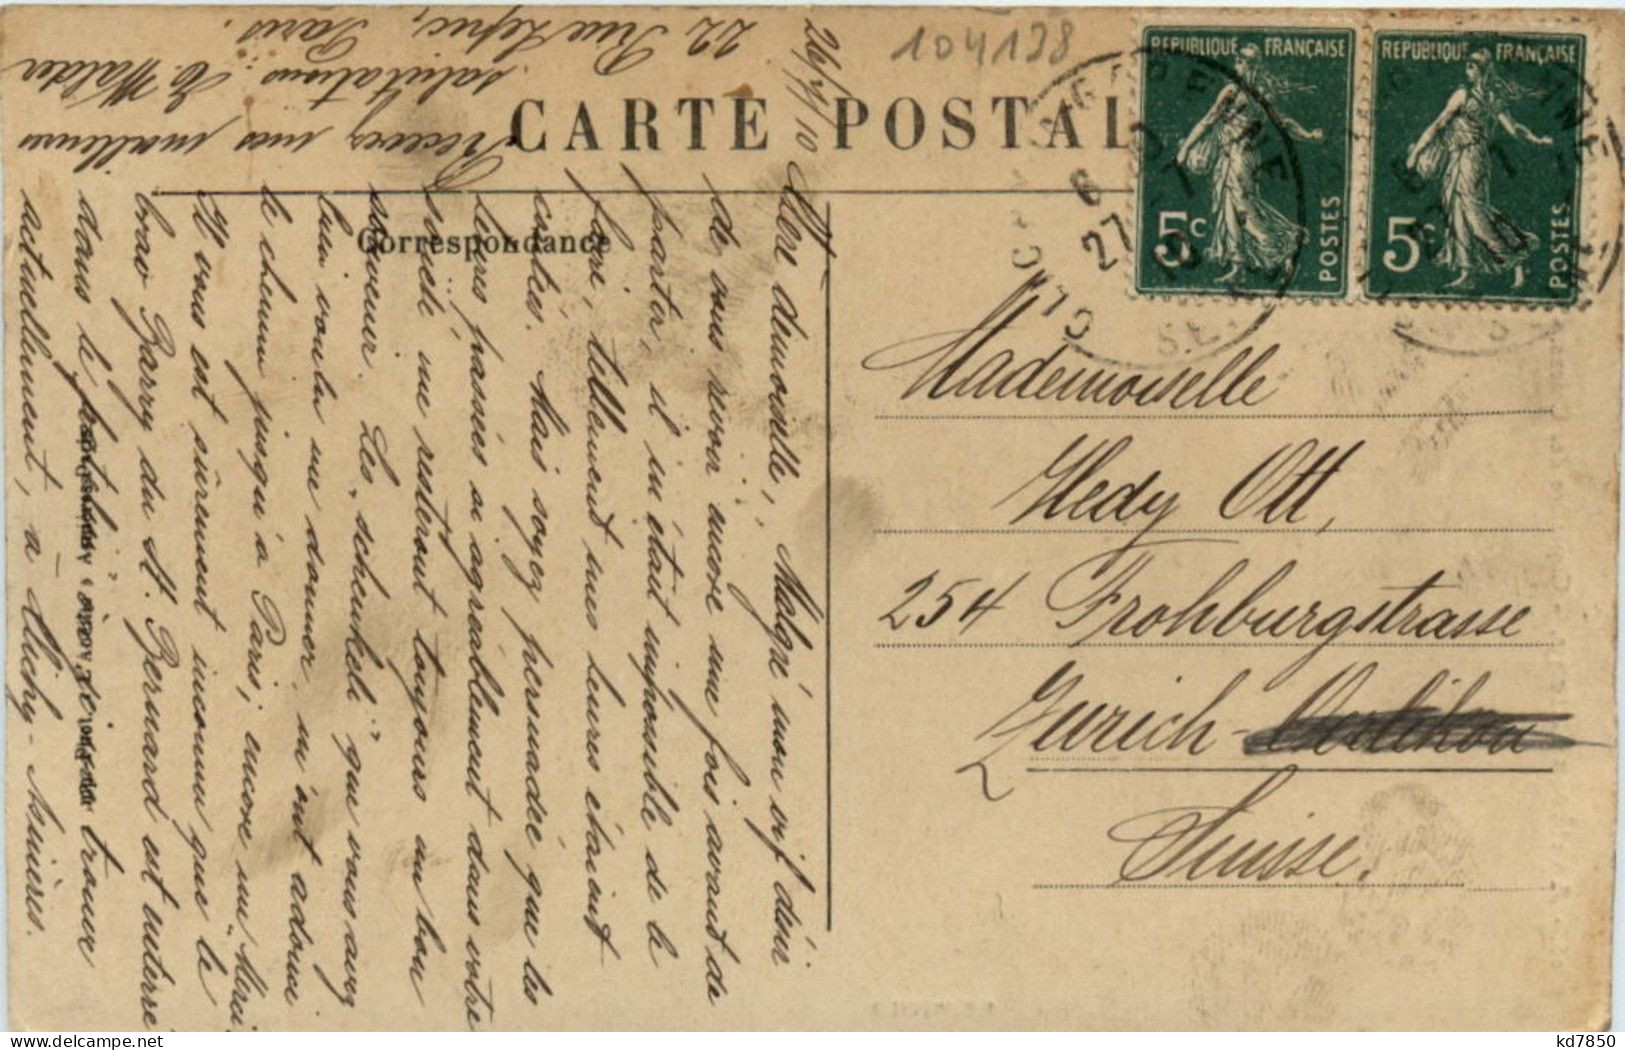 104138
CARTE POSTAL
Correspondance
REPUBLIQUE FRANÇAISE
5c
POSTES
REPUBLIQUE FRANÇAISE
5c
POSTES
27
10
26/7/10
Chère demoiselle, Malgré mon vif désir
de vous revoir encore une fois avant de
partir, il m'était impossible de le
faire, tellement mes heures étaient
comptées. Mais soyez persuadée que les
heures passées si agréablement dans votre
société me resteront toujours un bon
souvenir. Les „schenkeli" que vous avez
bien voulu me donner m'ont adouci
le chemin jusqu'à Paris; encore un „Merci".
Il vous est sûrement inconnu que le
brav Barry du St. Bernard est enterré
dans le
trouve
actuellement, à Clichy-Asnières.
Recevez mes meilleures
salutations. H. Walder
22 Rue Lepic, Paris.
Mademoiselle
Hedy Ott,
254 Frohburgstrasse
Zurich-Oerlikon
Suisse.
kd7850